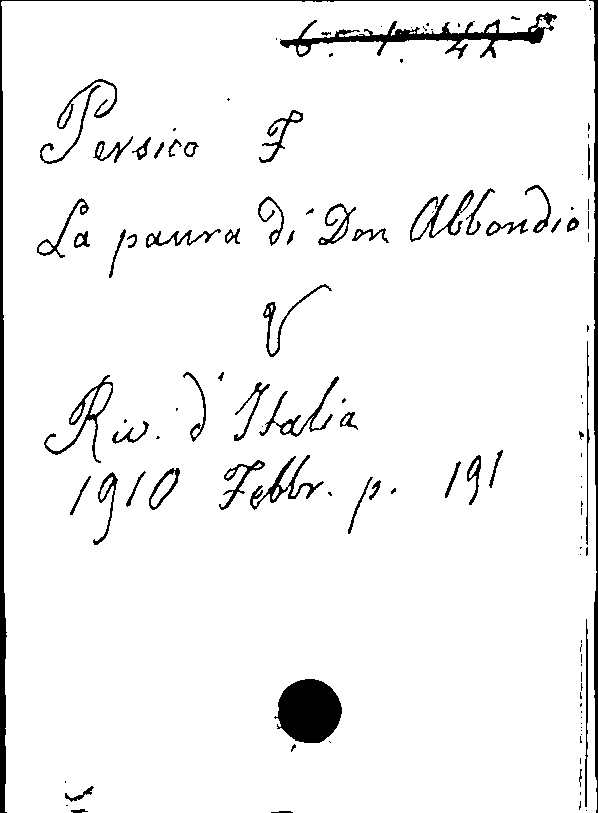 6. 1. 42
Persico F
La paura di Don Abbondio
V
Riv. d'Italia
1910 Febbr. p. 191